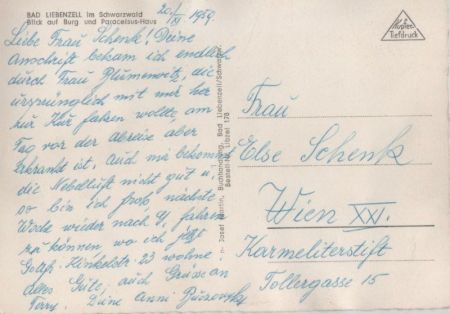 BAD LIEBENZELL im Schwarzwald
Blick auf Burg und Paracelsus-Haus
20./XI 1959.
Liebe Frau Schenk! Deine
Anschrift bekam ich endlich
durch Frau Blümewitz, die
ursprünglich mit mir her
zur Kur fahren wollte, am
Tag vor der Abreise aber
erkrankt ist. Auch mir bekommt
die Nebelluft nicht gut u.
so bin ich froh nächste
Woche wieder nach fahren
zu können, wo ich jetzt
Hinkelstr. 23 wohne
alles Gute, auch Grüsse an
Ferry. Deine Anni
Josef Martin, Buchhandlung, Bad Liebenzell/Schwarzw.
Bestell-Nr. Libzel 178
Kupfer-
Tiefdruck
Frau
Else Schenk
Wien XXI.
Karmeliterstift
Tollergasse 15